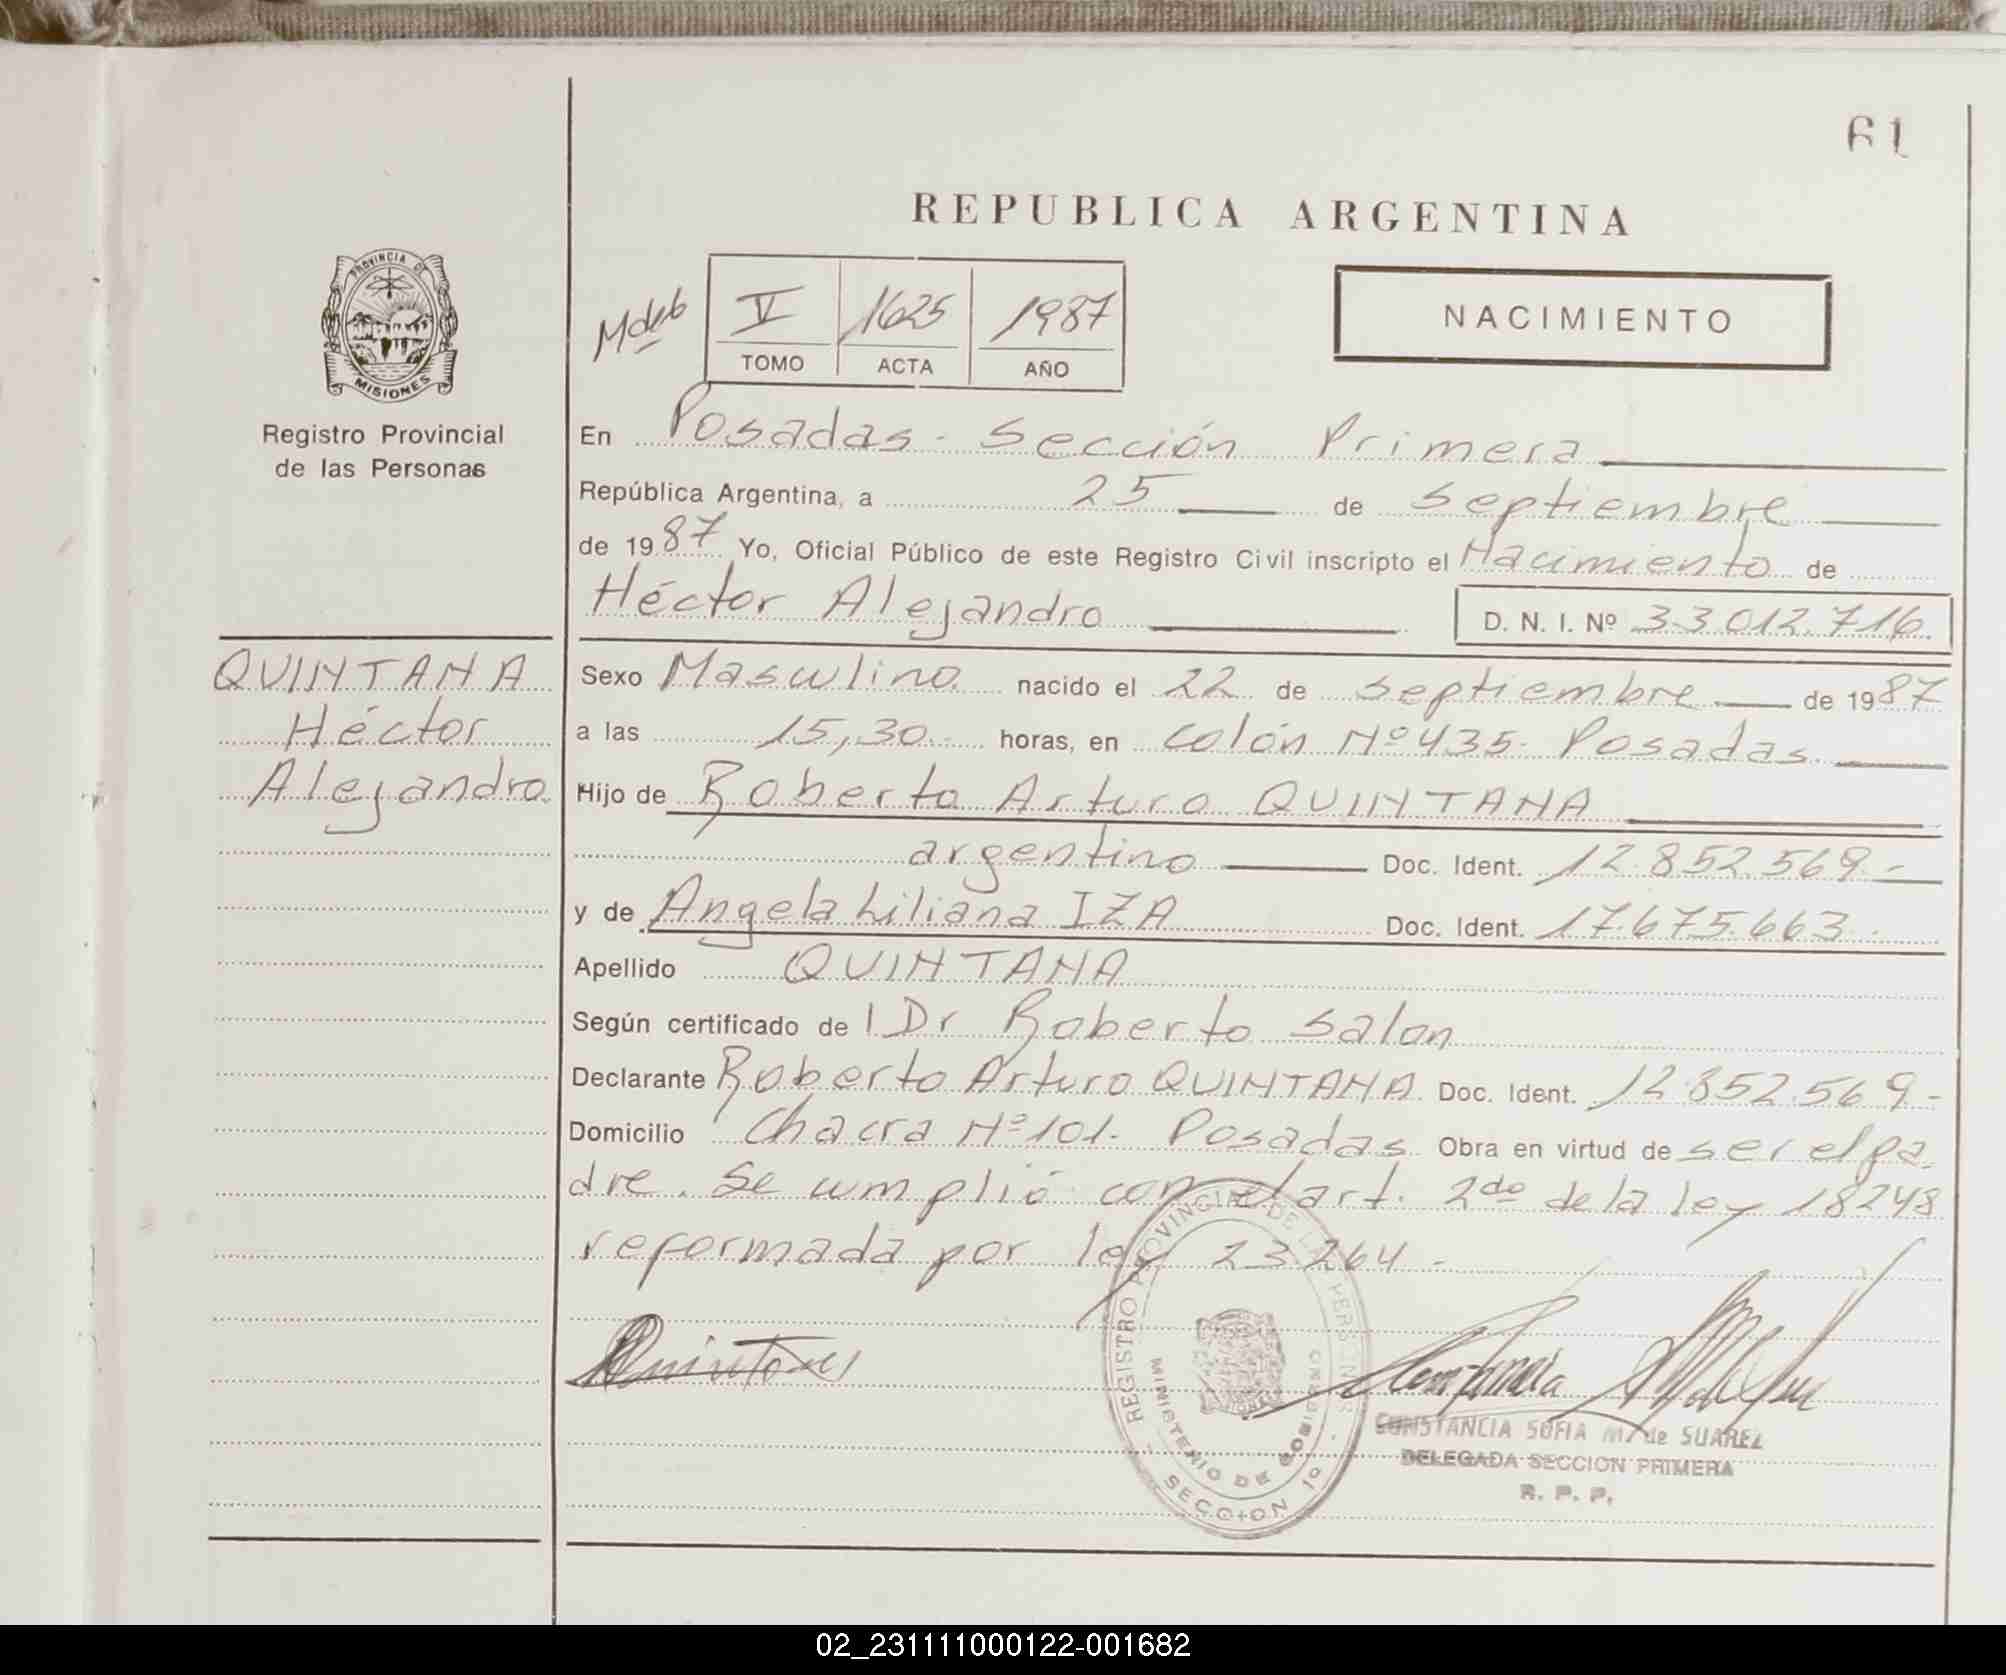 61
REPUBLICA ARGENTINA
PROVINCIA DE
MISIONES
Registro Provincial
de las Personas
V 1625 1987
TOMO ACTA AÑO
NACIMIENTO
En Posadas - Sección Primera
República Argentina, a 25 de Septiembre
de 1987 Yo, Oficial Público de este Registro Civil inscripto el Nacimiento de
Héctor Alejandro
D. N. I. Nº 33.012.716
QUINTANA
Héctor
Alejandro
Sexo Masculino nacido el 22 de Septiembre de 1987
a las 15,30 horas, en Colón Nº 435- Posadas
Hijo de Roberto Arturo QUINTANA
argentino Doc. Ident. 12.852.569.-
y de Angela Liliana IZA Doc. Ident. 17.675.663.-
Apellido QUINTANA
Según certificado de l Dr Roberto Salon
Declarante Roberto Arturo QUINTANA Doc. Ident. 12.852.569.-
Domicilio Chacra Nº 101- Posadas Obra en virtud de ser el pa
dre. Se cumplió con el art. 2do de la ley 18248
reformada por ley 23264.-
REGISTRO PROVINCIAL DE LAS PERSONAS
MINISTERIO DE GOBIERNO
SECCION 1º
CONSTANCIA SOFIA M. de SUAREZ
DELEGADA SECCION PRIMERA
R. P. P.
02_231111000122-001682